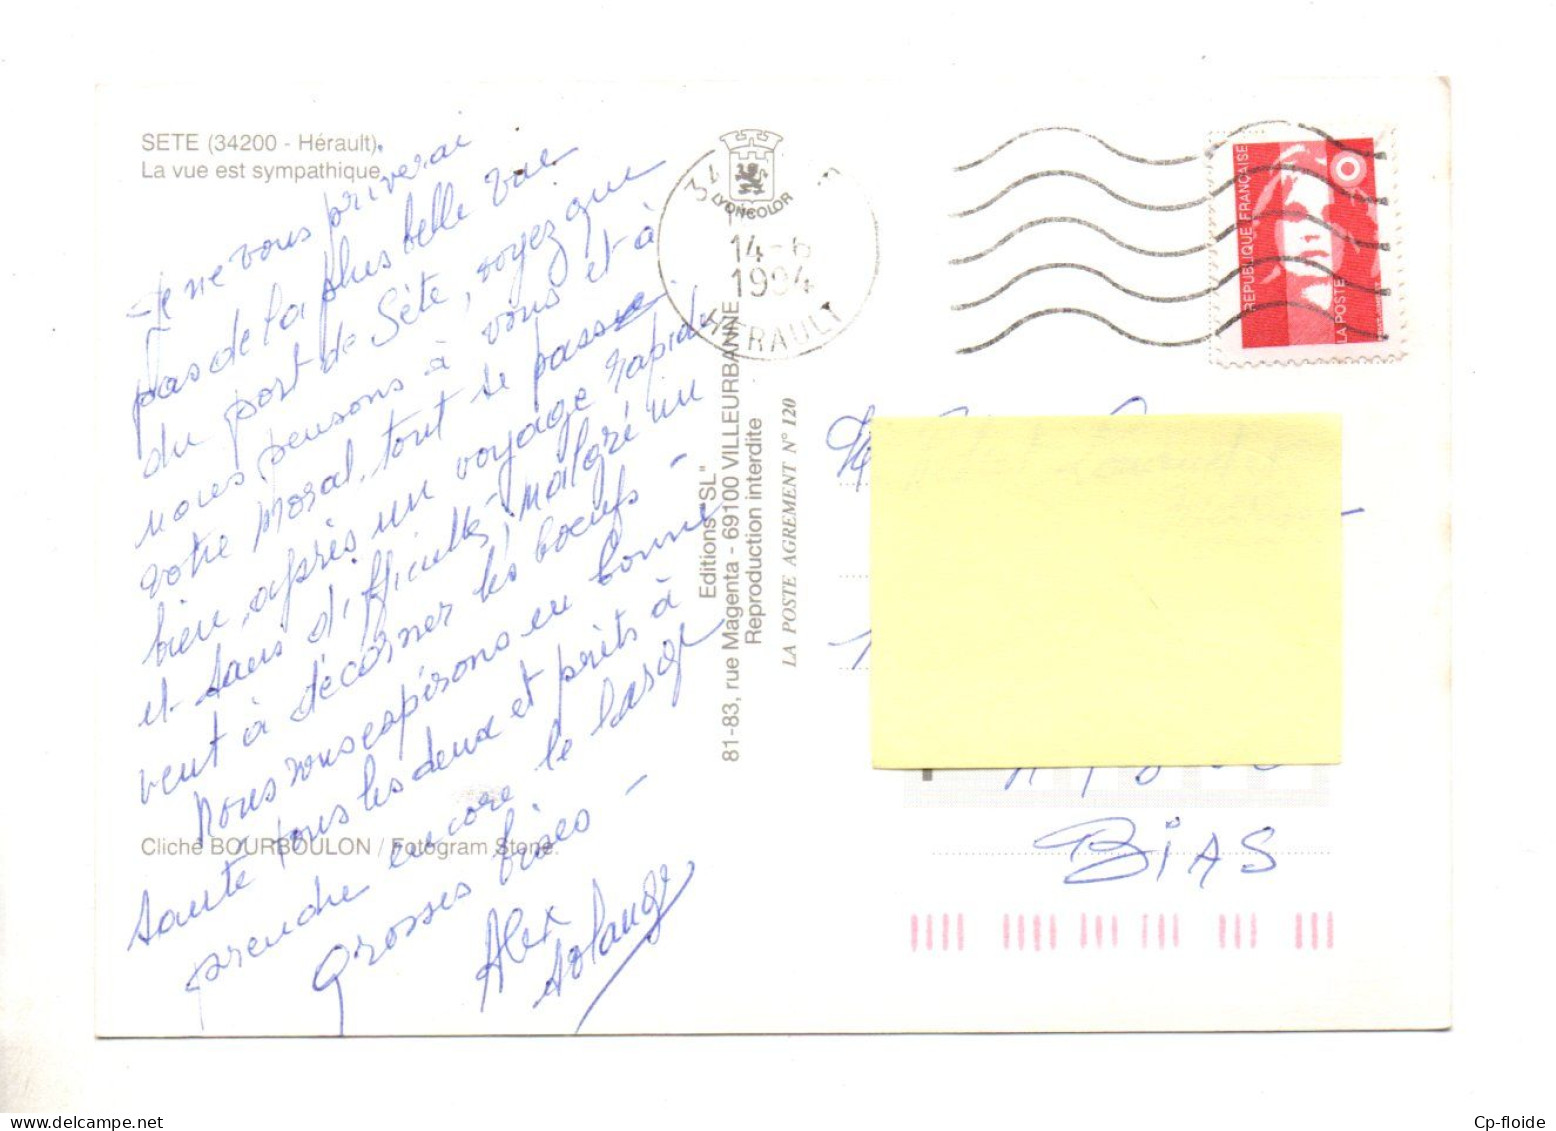 SETE (34200 - Hérault).
La vue est sympathique.
Je ne vous priverai
pas de la plus belle vue
du port de Sète, voyez que
nous pensons à vous et à
votre moral. tout se passe
bien, après un voyage rapide
et sans difficultés, malgré un
vent à décorner les boeufs -
Nous vous espérons en bonne
santé tous les deux et prêts à
prendre encore le large
Grosses bises -
Alex
Solange
Cliché BOURBOULON / Fotogram Stone.
Editions "SL"
81-83, rue Magenta - 69100 VILLEURBANNE
Reproduction interdite
LA POSTE AGREMENT N° 120
LYONCOLOR
34
14-6
1994
HERAULT
REPUBLIQUE FRANÇAISE
LA POSTE
BIAS
Cp-floide